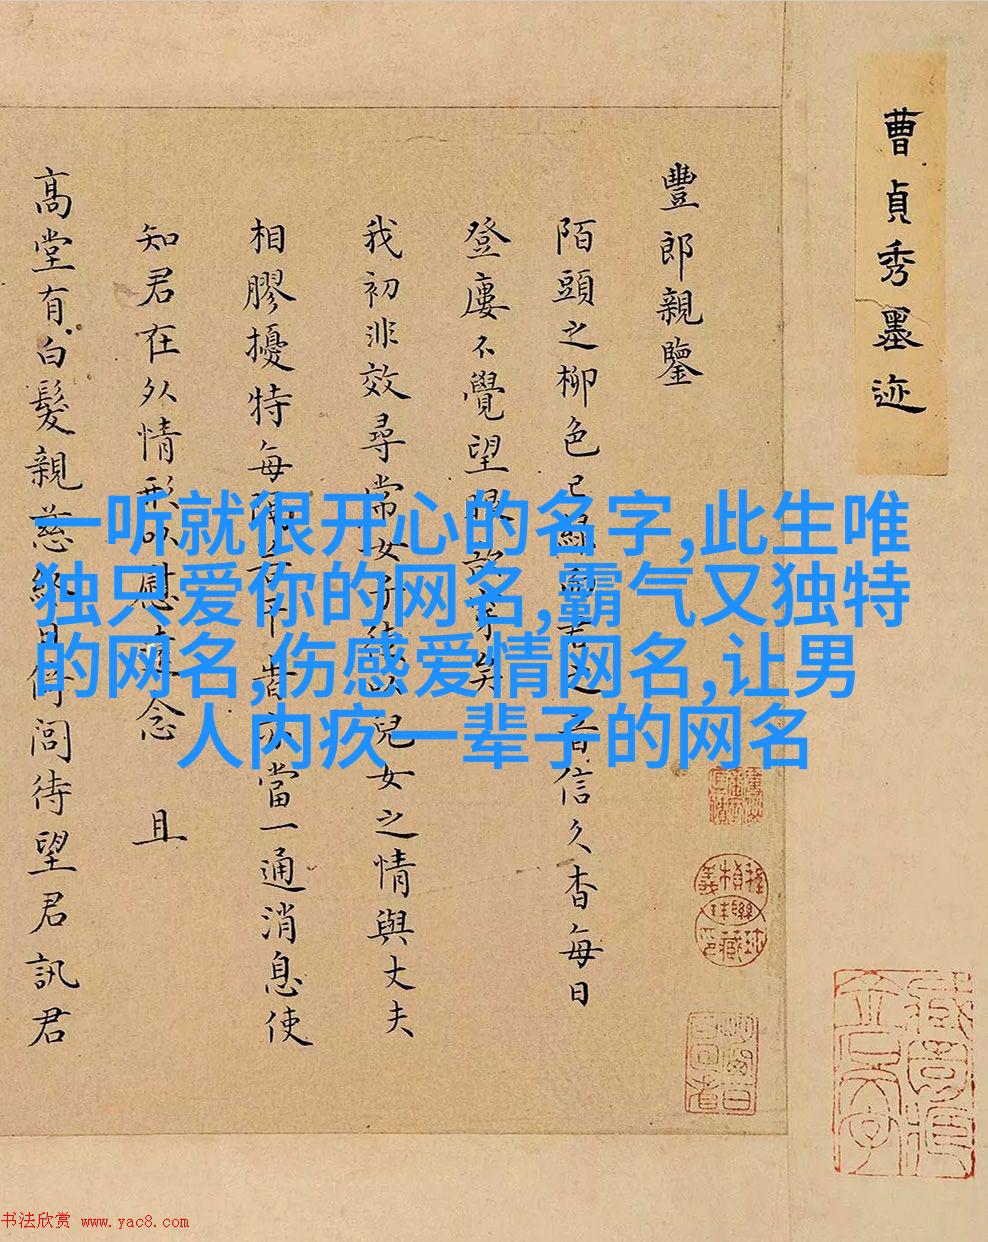 曹貞秀墨迹
豐郎親鑒
陌頭之柳色已 之音信久杳每日
登廔不覺望眼欲穿矣
我初非效尋常女子 以兒女之情與丈夫
相膠擾特每隔 當一通消息使
知君在外情形以慰遠念 且
高堂有白髮親慈終日倚閭待望君訊君
一听就很开心的名字,此生唯
独只爱你的网名,霸气又独特
的网名,伤感爱情网名,让男
人内疚一辈子的网名
书法欣赏 www.yac8.com